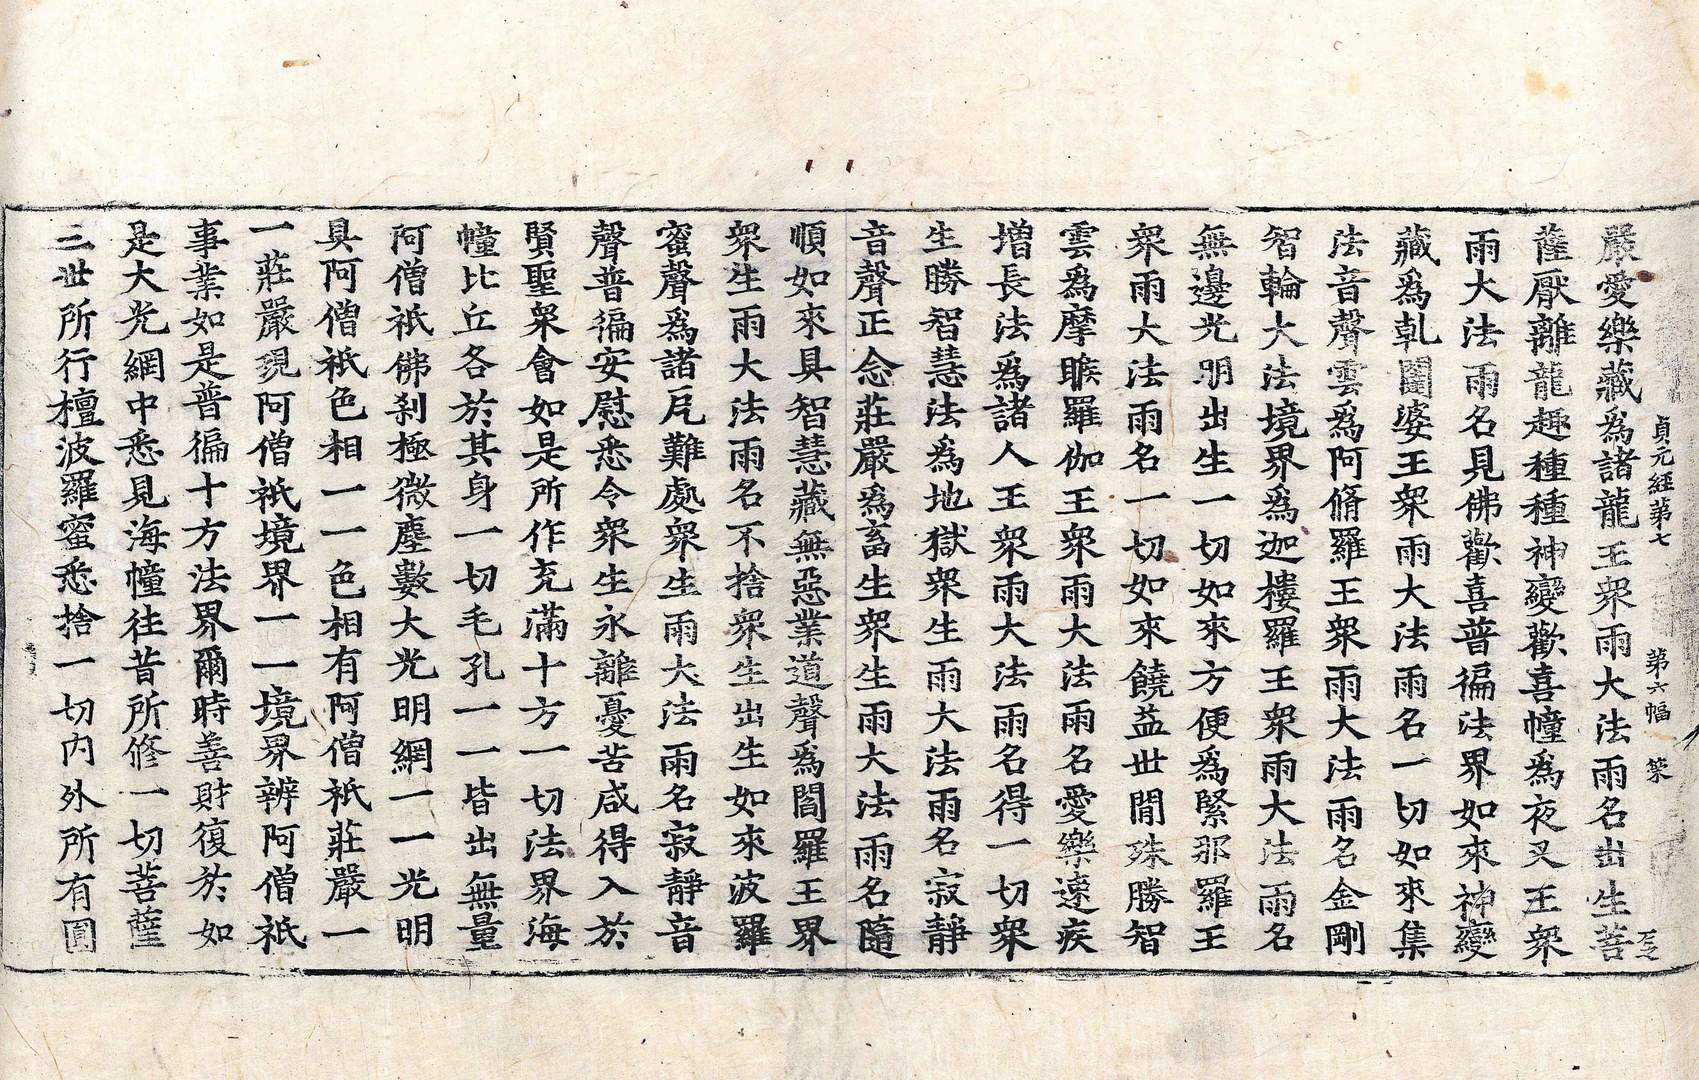 貞元經第七 第六幅 築
嚴愛樂藏爲諸龍王衆雨大法雨名出生菩
薩厭離龍趣種種神變歡喜幢爲夜叉王衆
雨大法雨名見佛歡喜普徧法界如來神變
藏爲乹闥婆王衆雨大法雨名一切如來集
法音聲雲爲阿脩羅王衆雨大法雨名金剛
智輪大法境界爲迦樓羅王衆雨大法雨名
無邊光明出生一切如來方便爲緊那羅王
衆雨大法雨名一切如來饒益世間殊勝智
雲爲摩睺羅伽王衆雨大法雨名愛樂速疾
增長法爲諸人王衆雨大法雨名得一切衆
生勝智慧法爲地獄衆生雨大法雨名寂靜
音聲正念莊嚴爲畜生衆生雨大法雨名隨
順如來具智慧藏無惡業道聲爲閻羅王界
衆生雨大法雨名不捨衆生出生如來波羅
蜜聲爲諸戹難處衆生雨大法雨名寂靜音
聲普徧安慰悉令衆生永離憂苦咸得入於
賢聖衆會如是所作充滿十方一切法界海
幢比丘各於其身一切毛孔一一皆出無量
阿僧祇佛剎極微塵數大光明網一一光明
具阿僧祇色相一一色相有阿僧祇莊嚴一
一莊嚴現阿僧祇境界一一境界辨阿僧祇
事業如是普徧十方法界爾時善財復於如
是大光網中悉見海幢往昔所修一切菩薩
三世所行檀波羅蜜悉捨一切內外所有圓